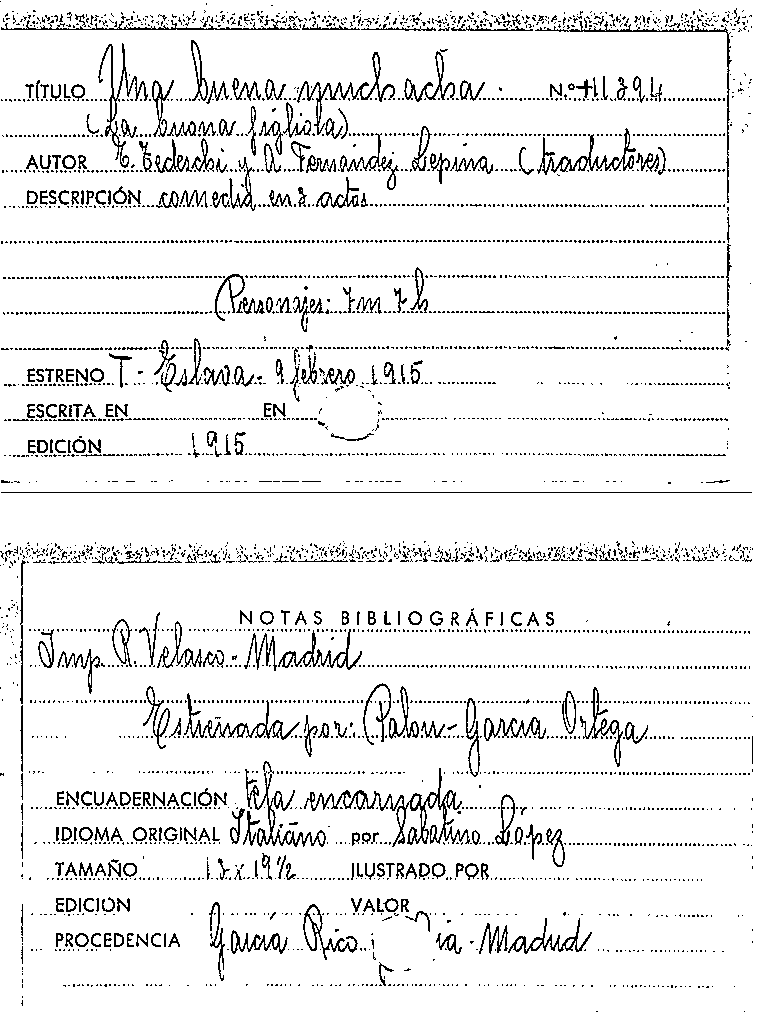 TÍTULO Una buena muchacha. N.º 11394
(La buona figliola)
AUTOR E. Tedeschi y A. Fernández Lepina (traductores)
DESCRIPCIÓN comedia en 3 actos
Personajes: 7m 7h
ESTRENO T. Eslava - 9 febrero 1915
ESCRITA EN EN
EDICIÓN 1915
NOTAS BIBLIOGRÁFICAS
Imp R. Velasco - Madrid
Estrenada por: Palou - García Ortega
ENCUADERNACIÓN tela encarnada
IDIOMA ORIGINAL Italiano por Sabatino López
TAMAÑO 13 x 19½ ILUSTRADO POR
EDICIÓN VALOR
PROCEDENCIA García Rico ia - Madrid